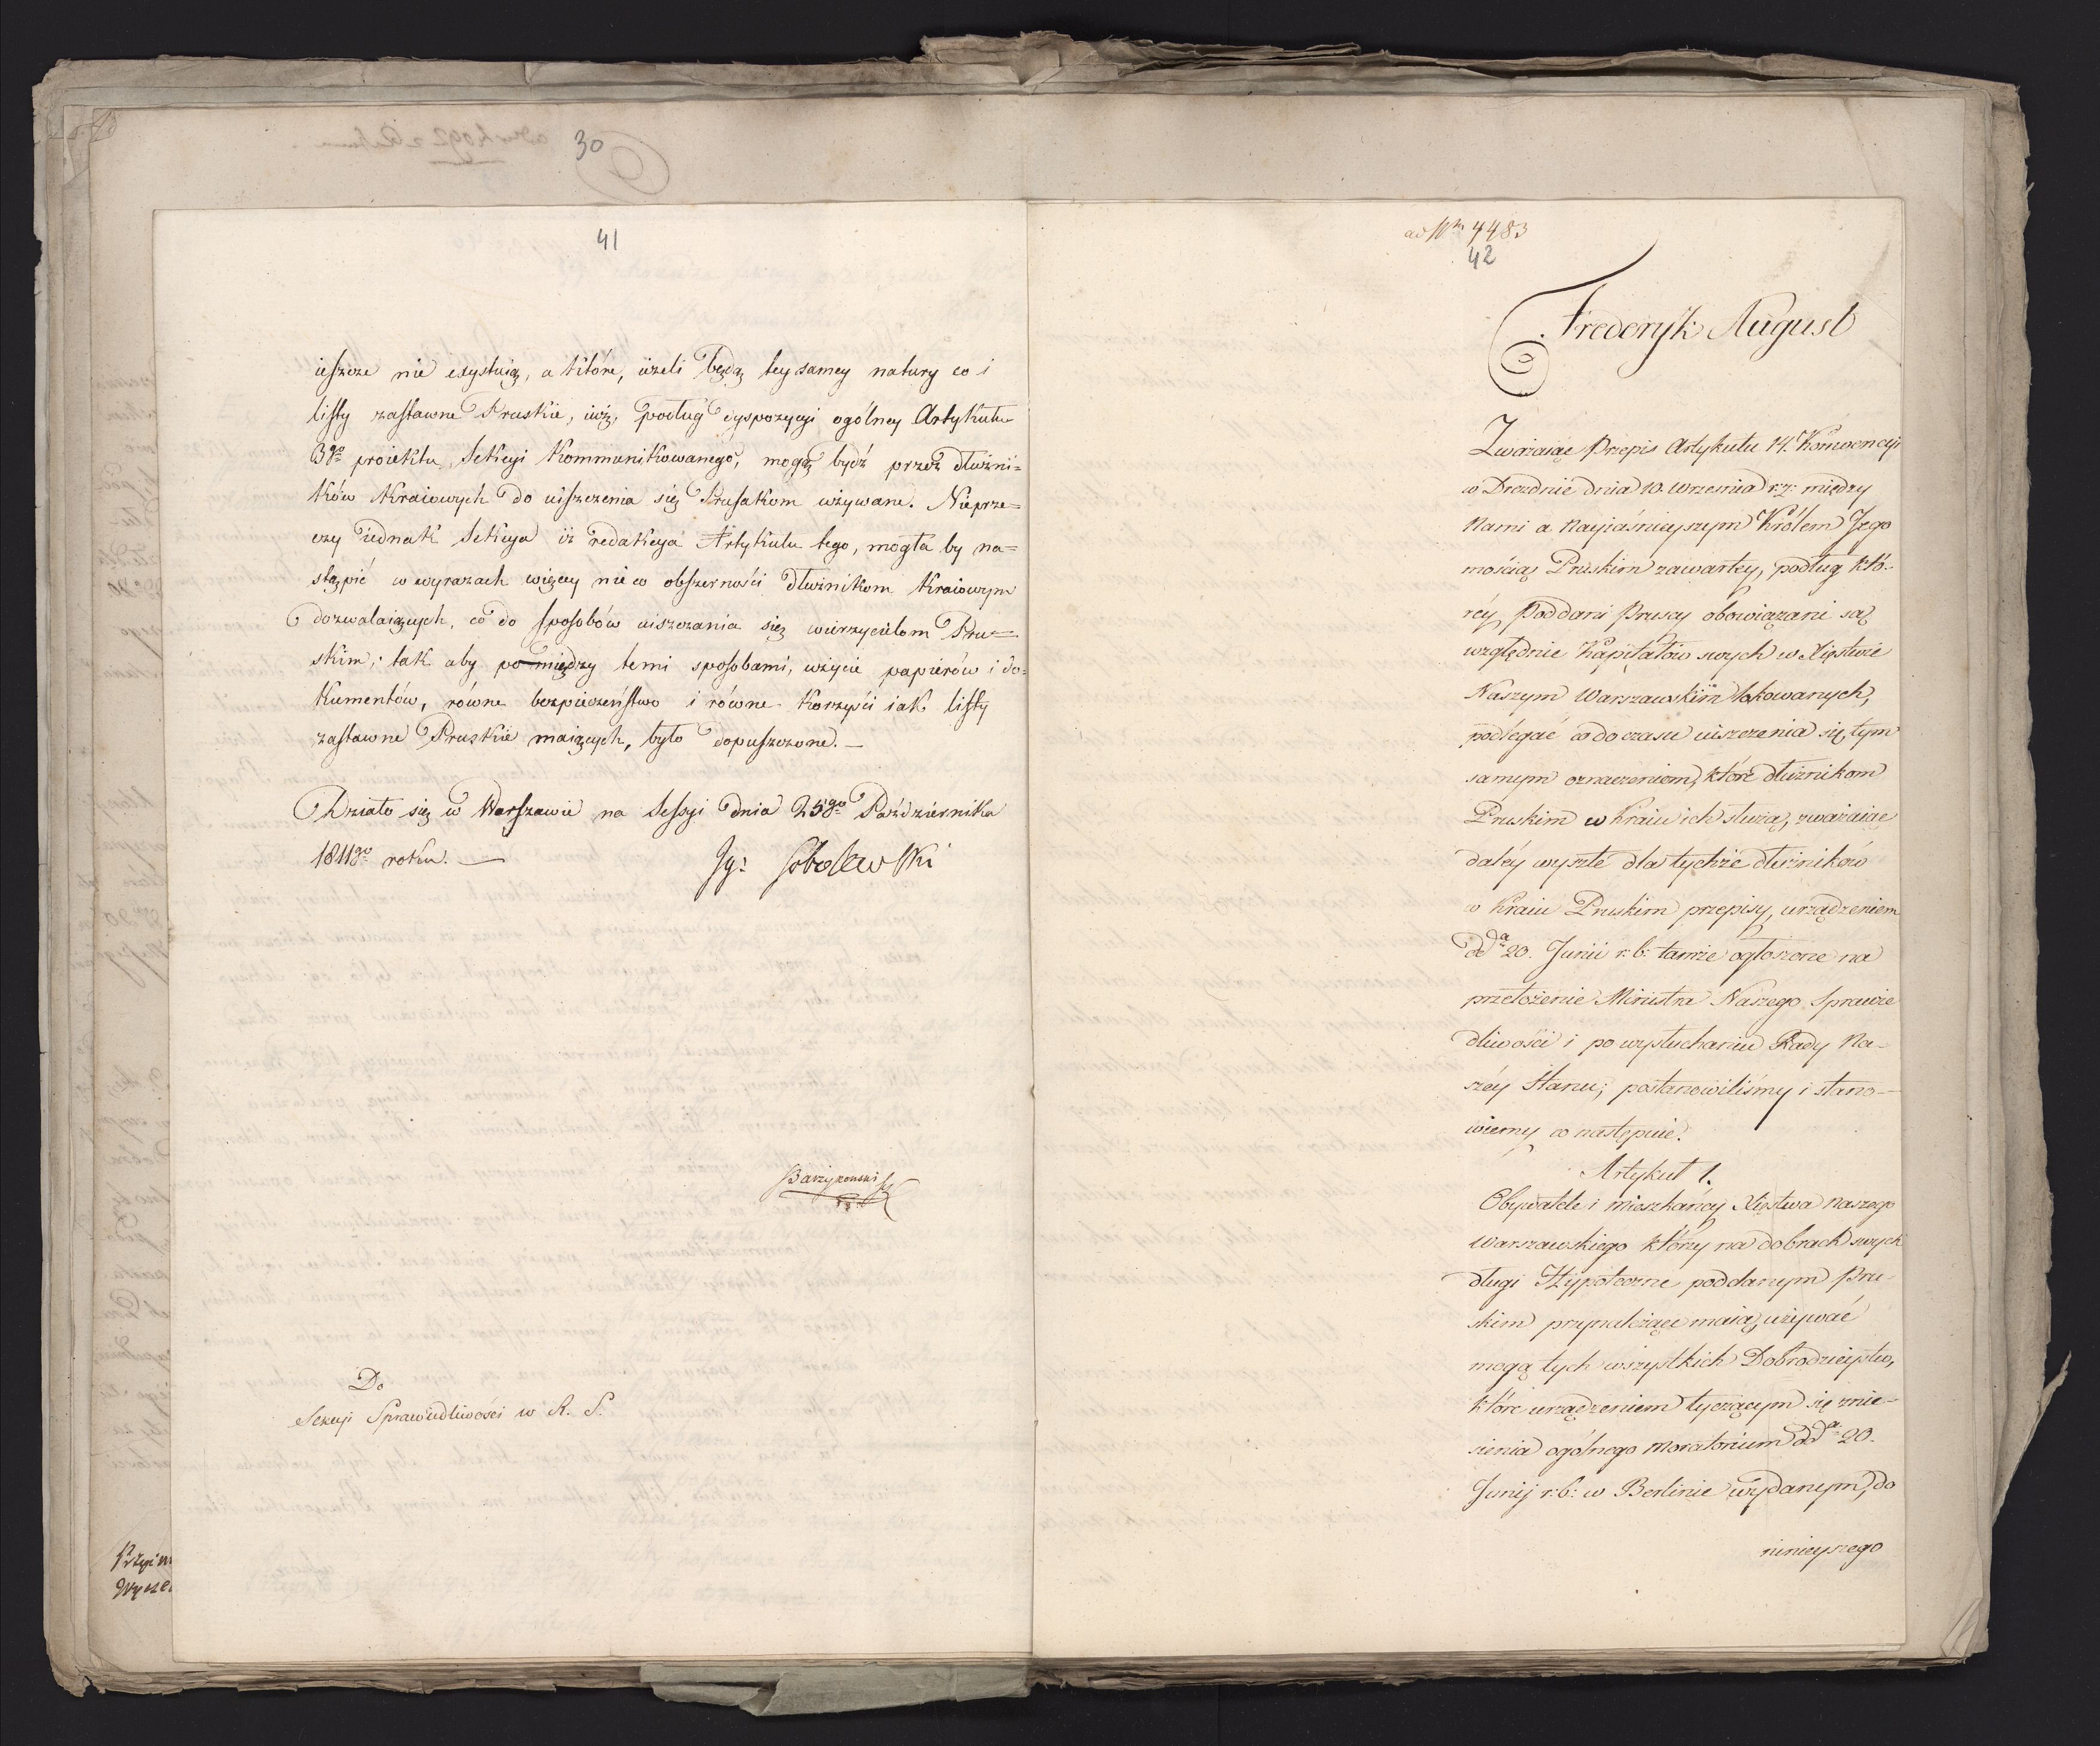 30
41
ieszcze nie exystuią, a które, ieżeli będą tey samey natury co i
listy zastawne Pruskie, iuż, podług dyspozycyi ogólney Artykułu
3go proiektu, Sekcyi kommunikowanego, mogą bydź przez dłużni=
ków Kraiowych do uiszczenia się Prusakom używane. Nieprze=
czy iednak Sekcya iż redakcya Artykułu tego, mogła by na=
stąpić w wyrazach więcey nieco obszerności dłużnikom Kraiowym
dozwalaiących, co do sposobów uiszczania się wierzycielom Pru=
skim; tak aby pomiędzy temi sposobami, użycie papierów i do=
kumentów, równe bezpieczeństwo i równe korzyści iak listy
zastawne Pruskie maiących, było dopuszczone. —
Działo się w Warszawie na Sessyi dnia 25go Października
1811go roku. —
Ig: Sobolewski
Barzykowski
Do
Sekcyi Sprawiedliwości w R. S.
Przyim
Wyszcz
ad Nm 4483
42
Frederyk August
Zważaiąc Przepis Artykułu 14. Konwencyi
w Dreźnie dnia 10. Września r: z: między
Nami a Nayiaśnieyszym Królem Jego
mością Pruskim zawartey, podług któ-
réy, Poddani Pruscy obowiązani są
względnie Kapitałów swych w Xięstwie
Naszym Warszawskim lokowanych,
podlegać co do czasu uiszczenia się, tym
samym oznaczeniom, które dłużnikom
Pruskim w Kraiu ich służą, zważaiąc
daléy wyszłe dla tychże dłużników
w Kraiu Pruskim przepisy, urządzeniem
dda 20. Junii r: b: tamże ogłoszone na
przełożenie Ministra Naszego Sprawie
dliwości i po wysłuchaniu Rady Na-
széy Stanu; postanowiliśmy i stano-
wiemy co następuie.
Artykuł 1.
Obywatele i mieszkańcy Xięstwa Naszego
Warszawskiego którzy na dobrach swych
długi Hypoteczne poddanym Pru-
skim przynależące maią, używać
mogą tych wszystkich Dobrodzieystw,
które urządzeniem tyczącym się znie-
sienia ogólnego moratorium dda 20.
Junij r: b: w Berlinie wydanym, do
ninieyszego